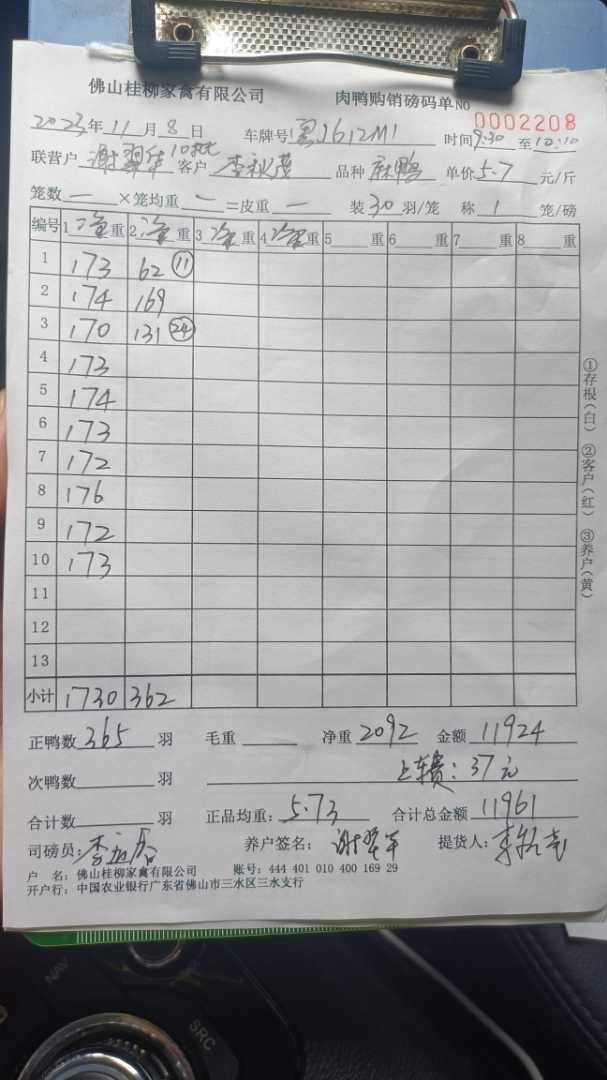 佛山桂柳家禽有限公司 肉鸭购销磅码单 NO 0002208
2023年 11月 8日 车牌号 J1612M1 时间 9:30 至 10:10
联营户 谢翠华 10批 客户 品种 麻鸭 单价 5.7 元/斤
笼数 — ×笼均重 — =皮重 — 装 30 羽/笼 称 1 笼/磅
编号 1 净重 2 净重 3 净重 4 净重 5 重 6 重 7 重 8 重
1 173 62 ⑪
2 174 169
3 170 131 ㉔
4 173
5 174
6 173
7 172
8 176
9 172
10 173
11
12
13
小计 1730 362
正鸭数 365 羽 毛重 净重 2092 金额 11924
次鸭数 羽 上车费：37元
合计数 羽 正品均重：5.73 合计总金额 11961
司磅员： 养户签名：谢翠华 提货人：
户 名：佛山桂柳家禽有限公司 账号：444 401 010 400 169 29
开户行：中国农业银行广东省佛山市三水区三水支行
①存根(白) ②客户(红) ③养户(黄)
NAV
SRC